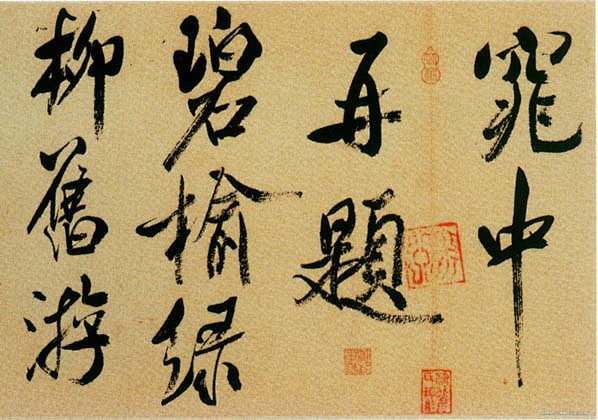 窕中
再題
碧榆綠
柳舊游